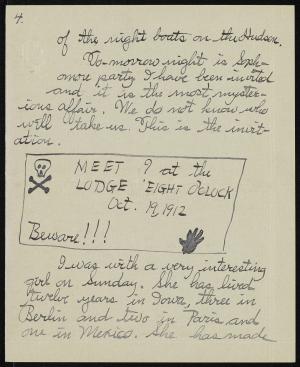 4.
of the night boats on the Hudson.
To-morrow night is Soph-
omore party I have been invited
and it is the most myster-
ious affair. We do not know who
will take us. This is the invit-
ation.
MEET 9 at the
LODGE 'EIGHT O'CLOCK
Oct. 19, 1912
Beware!!!
I was with a very interesting
girl on Sunday. She has lived
twelve years in Iowa, three in
Berlin and two in Paris and
one in Mexico. She has made